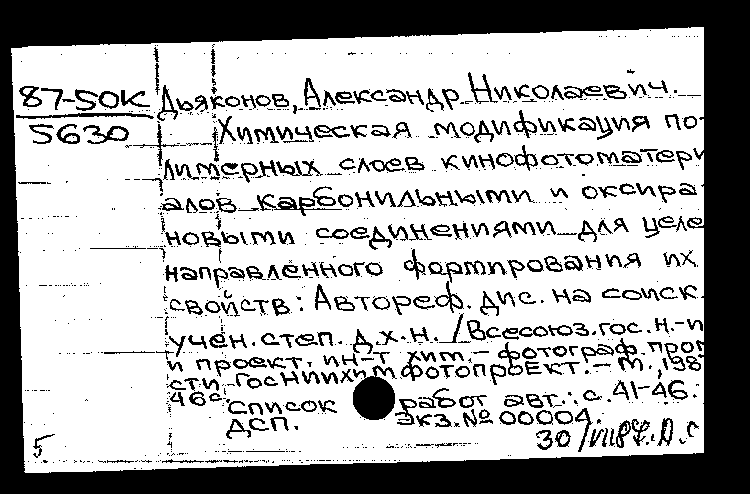 87-50К
5630
Дьяконов, Александр Николаевич.
Химическая модификация по-
лимерных слоев кинофотоматери
алов карбонильными и оксира-
новыми соединениями для целе
направленного формирования их
свойств: Автореф. дис. на соиск.
учен. степ. д.х.н. /Всесоюз.гос.н.-и
и проект. ин-т хим.-фотограф. пром
сти ГосНИИхимфотопроект.-М., 198
46с.
Список работ авт.: с. 41-46.
ДСП. Экз.№ 00004.
5.